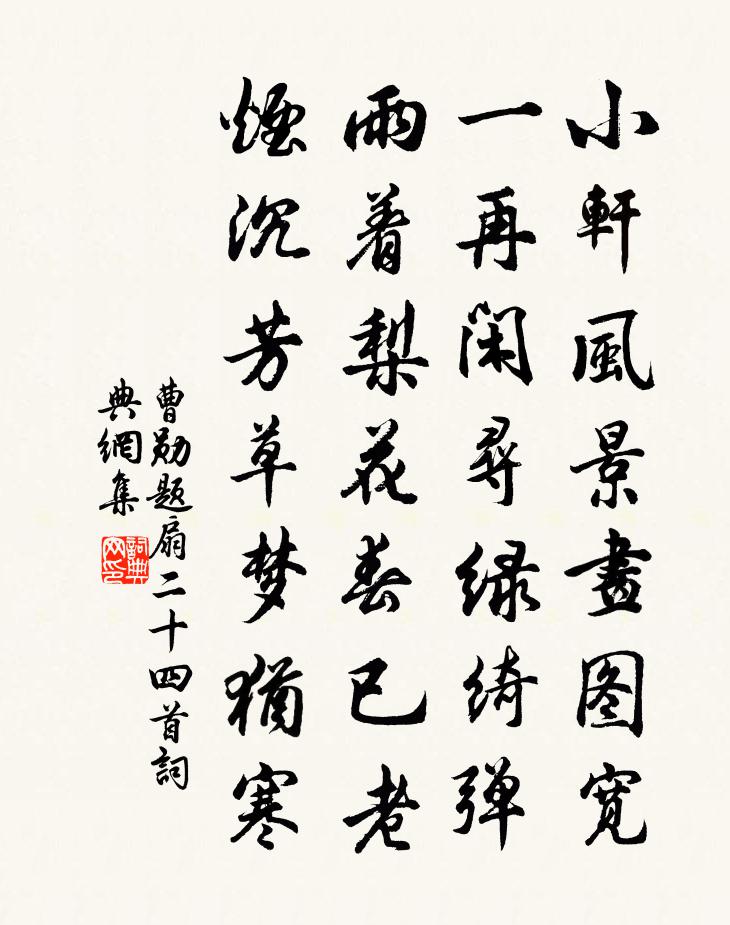 小軒風景畫图寬
一再閑尋綠綺弹
雨着梨花春已老
煙沉芳草梦猶寒
曹勛題扇二十四首詞
典網集
詞典网印